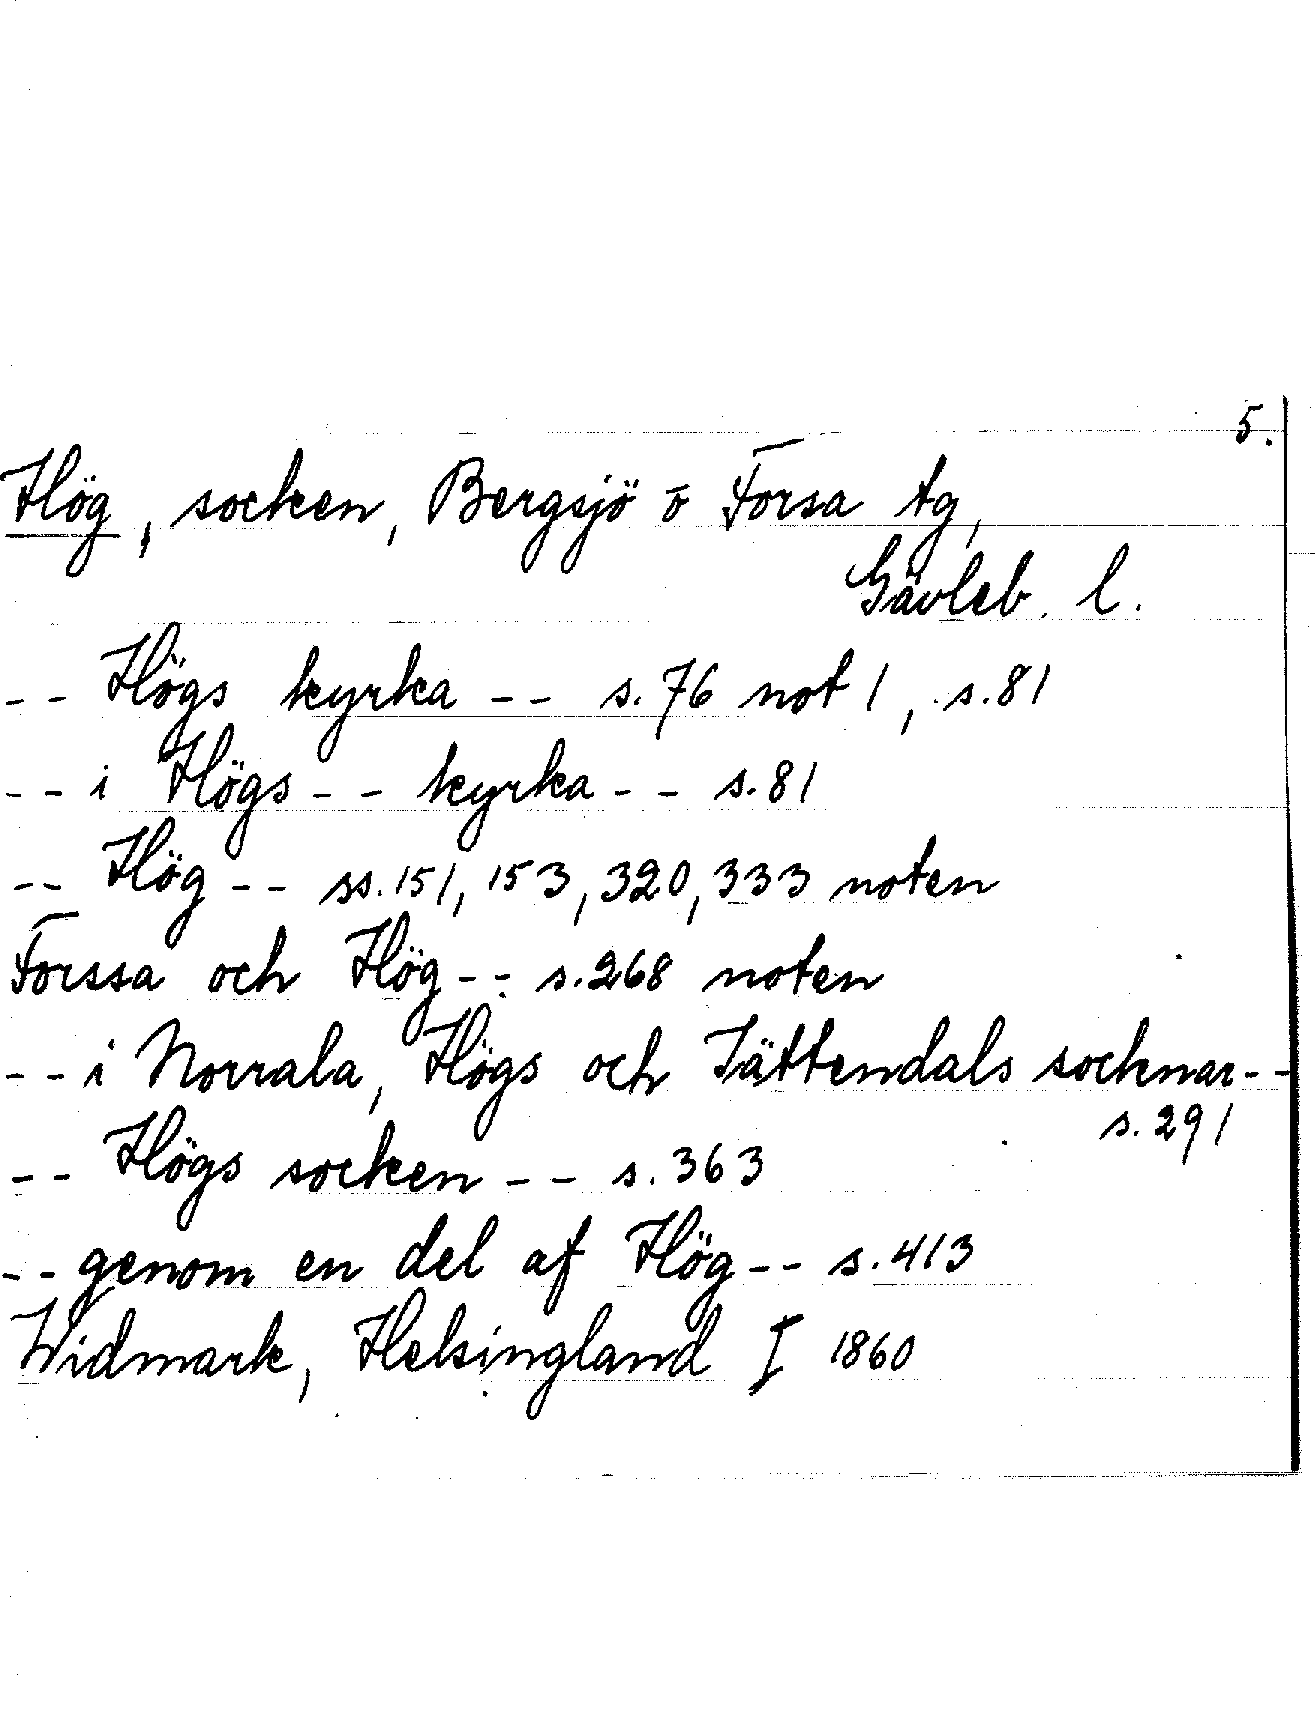 5.
Hög, socken, Bergsjö o Forsa tg,
Gävleb. l.
-- Högs kyrka -- s. 76 not 1, s. 81
-- i Högs -- kyrka -- s. 81
-- Hög -- ss. 151, 153, 320, 333 noten
Forssa och Hög -- s. 268 noten
-- i Norrala, Högs och Jättendals socknar --
s. 291
-- Högs socken -- s. 363
-- genom en del af Hög -- s. 413
Widmark, Helsingland I 1860